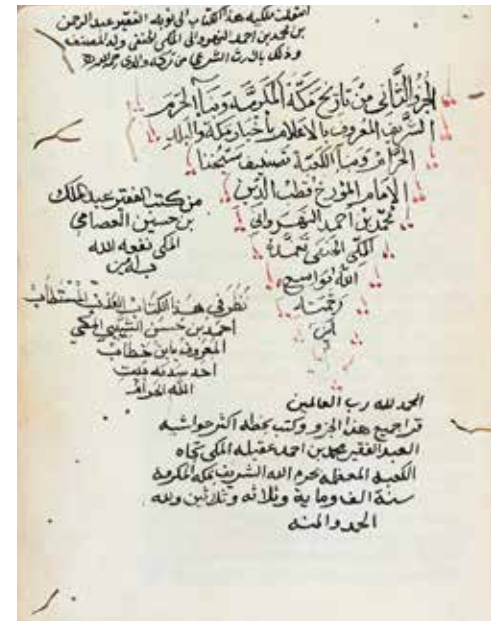 انتقلت ملكية هذا الكتاب الى نوبة الفقير عبد الرحمن
بن محمد بن احمد النهروالي المكي الحنفي ولد المصنف
وذلك بالارث الشرعي من تركة والدي رحمه الله
الجزء الثاني من تاريخ مكة المكرمة وبناء الحرم
الشريف المعروف بالاعلام باخبار مكة والبلد
الحرام وبناء الكعبة تصنيف شيخنا
الامام المؤرخ قطب الدين
محمد بن احمد النهروالي
المكي الحنفي تغمده
الله بواسع
رحمته
آمين
من كتب الفقير عبد الملك
بن حسين العصامي
المكي نفعه الله
به آمين
نظر في هذا الكتاب العذب المستطاب
احمد بن حسن الشيبي المكي
المعروف بابن خطاب
احد سدنة بيت
الله الحرام
الحمد لله رب العالمين
قرا جميع هذا الجزو وكتب بخطه اكثر حواشيه
العبد الفقير محمد بن احمد عقيله المكي تجاه
الكعبه المعظمه بحرم الله الشريف بمكه المكرمة
سنة الف وماية وثلاثه وثلاثين ولله
الحمد والمنه